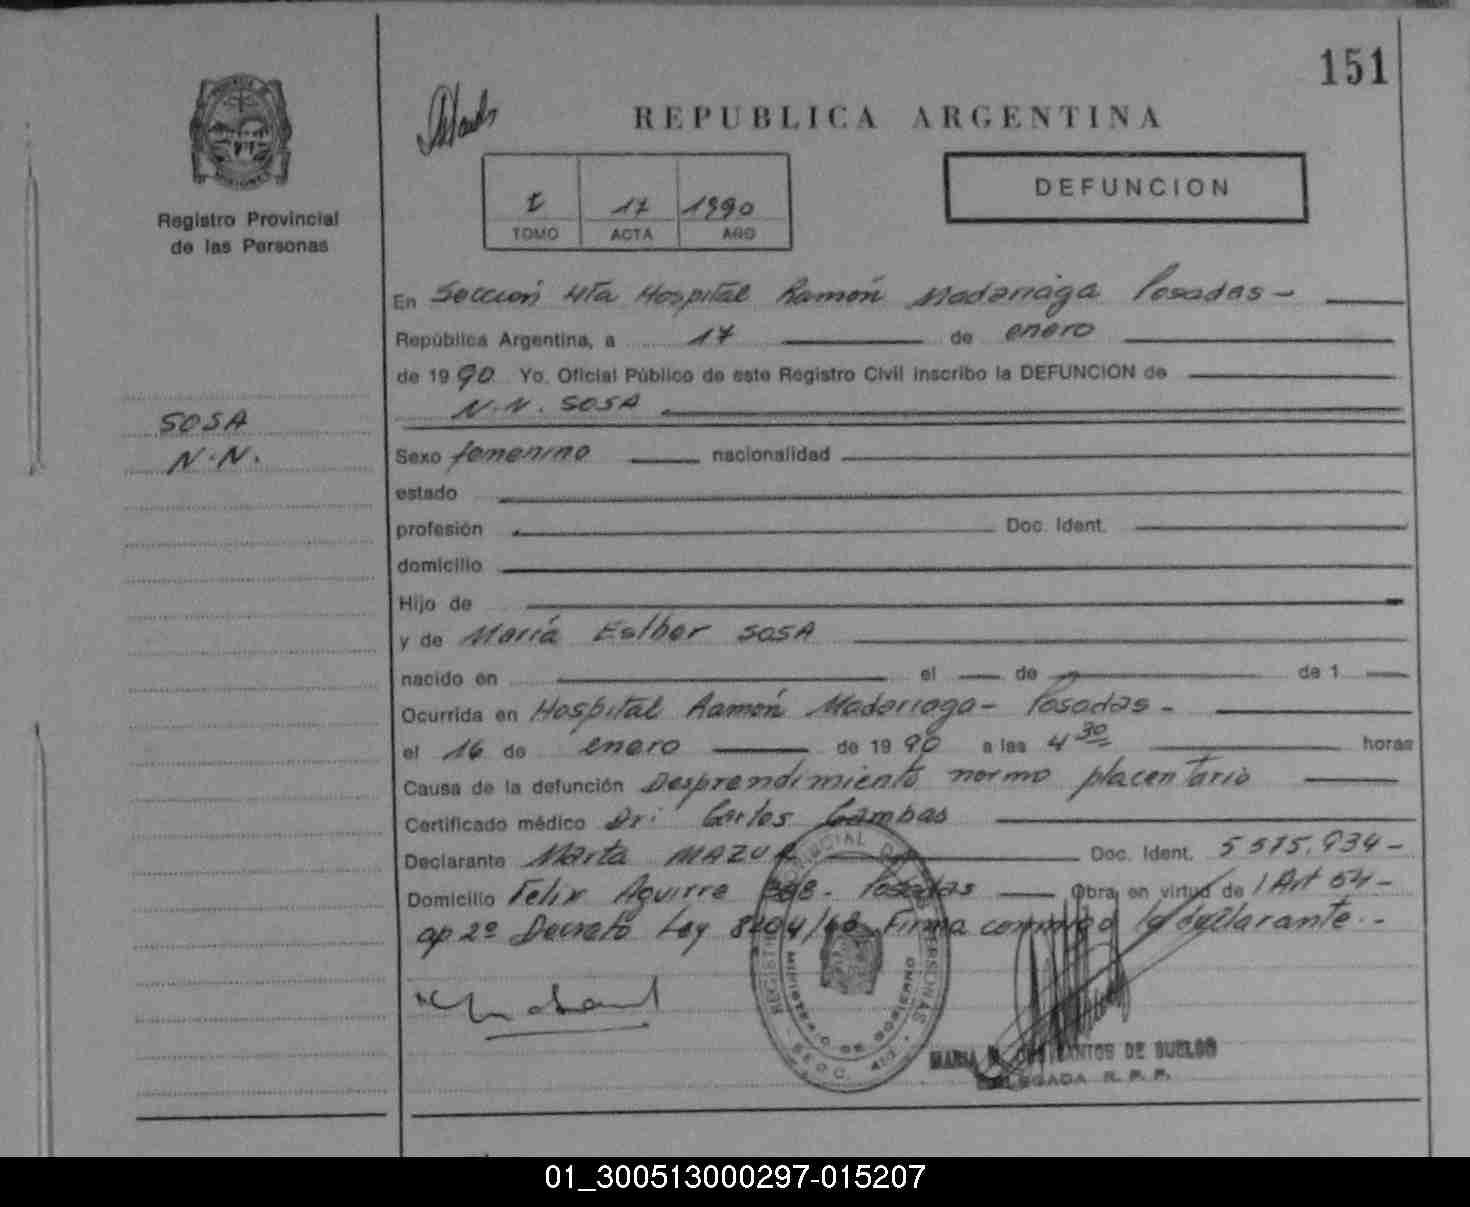 151
REPUBLICA ARGENTINA
DEFUNCION
Registro Provincial
de las Personas
t 17 1990
TOMO ACTA AÑO
En Sección 4ta Hospital Ramón Madariaga Posadas -
República Argentina, a 17 de enero
de 1990 Yo, Oficial Público de este Registro Civil inscribo la DEFUNCION de
N.N. SOSA
SOSA
N.N.
Sexo femenino nacionalidad
estado
profesión Doc. Ident.
domicilio
Hijo de
y de María Esther SOSA
nacido en el de de 1
Ocurrida en Hospital Ramón Madariaga - Posadas -
el 16 de enero de 1990 a las 4 30 horas
Causa de la defunción Desprendimiento normo placentario
Certificado médico Dr. Carlos Cambas
Declarante Marta MAZUR Doc. Ident. 5.575.934-
Domicilio Felix Aguirre - Posadas Obra en virtud de l Art 54-
ap 2º Decreto Ley 8204/63 Firma conmigo la declarante.-
REGISTRO PROVINCIAL DE LAS PERSONAS
MINISTERIO DE GOBIERNO
SECC. 4ta
MARIA SANTOS DE
DELEGADA R. P. P.
01_300513000297-015207